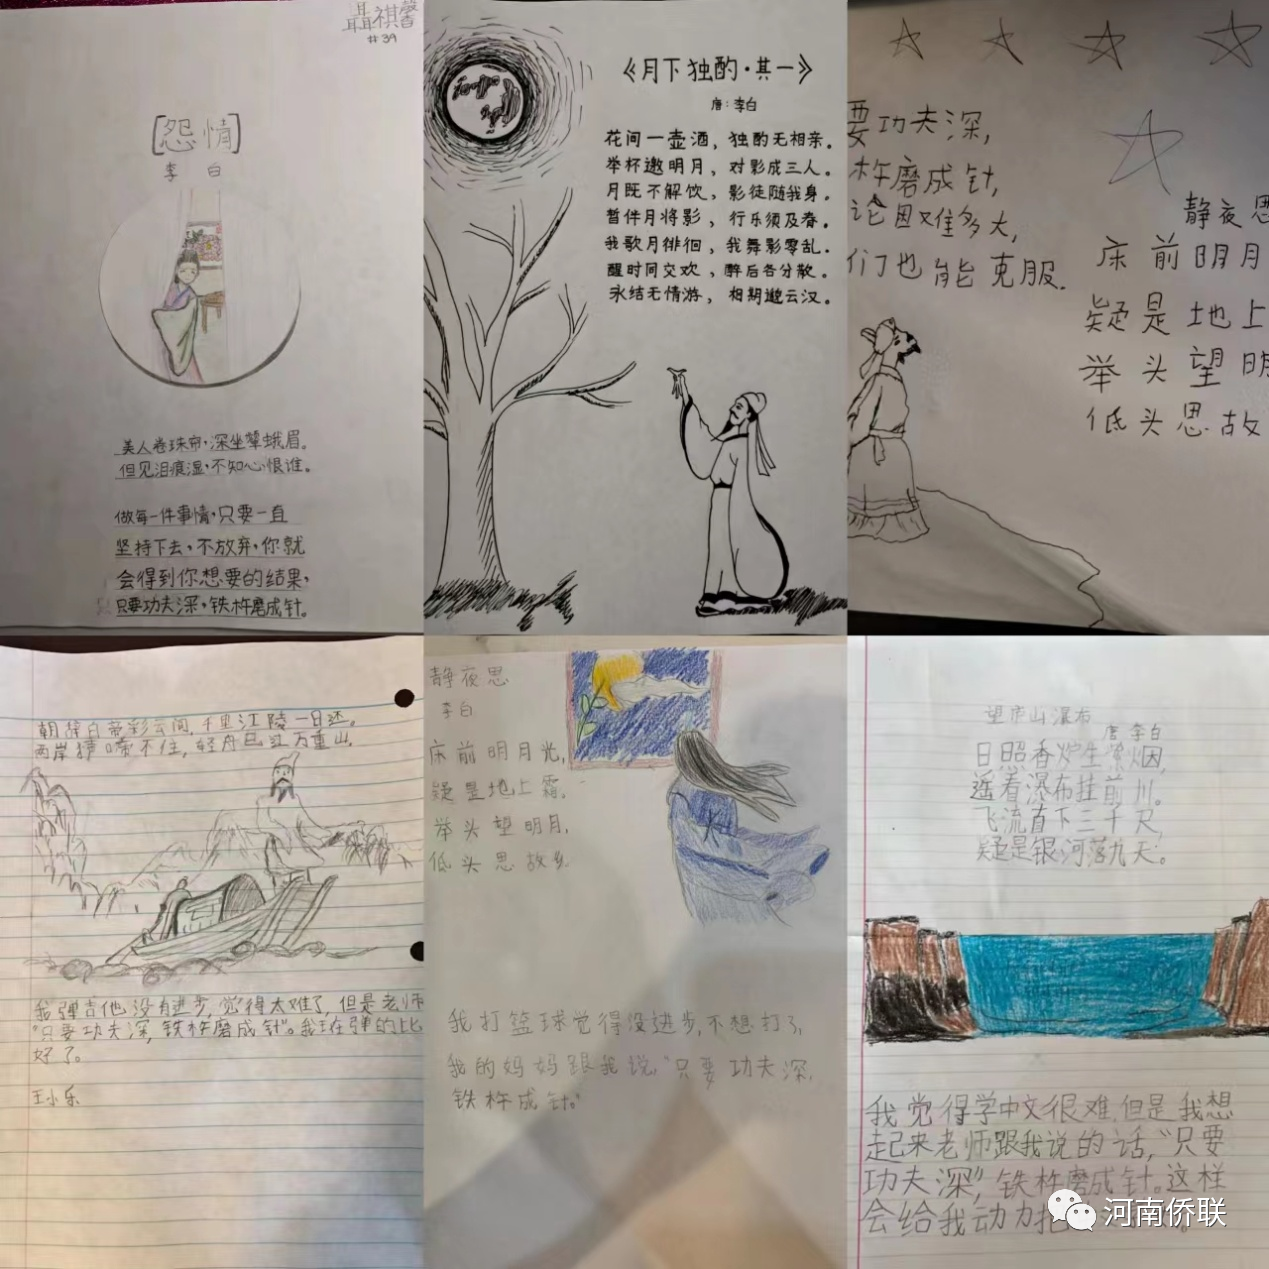 聶祺馨
#39
[怨情]
李白
美人卷珠帘,深坐颦蛾眉。
但见泪痕湿,不知心恨谁。
做每一件事情,只要一直
坚持下去,不放弃,你就
会得到你想要的结果,
只要功夫深,铁杵磨成针。
《月下独酌·其一》
唐:李白
花间一壶酒,独酌无相亲。
举杯邀明月,对影成三人。
月既不解饮,影徒随我身。
暂伴月将影,行乐须及春。
我歌月徘徊,我舞影零乱。
醒时同交欢,醉后各分散。
永结无情游,相期邈云汉。
要功夫深,
杵磨成针,
论困难多大,
们也能克服.
静夜思
床前明月
疑是地上
举头望明
低头思故
朝辞白帝彩云间,千里江陵一日还。
两岸猿啼不住,轻舟已过万重山.
我弹吉他没有进步,觉得太难了,但是老师
"只要功夫深,铁杵磨成针"。我现在弹的比
好了。
王小乐
静夜思
李白
床前明月光,
疑是地上霜.
举头望明月,
低头思故乡
我打篮球觉得没进步,不想打了,
我的妈妈跟我说,"只要功夫深,
铁杵成针。"
望庐山瀑布
唐 李白
日照香炉生紫烟,
遥看瀑布挂前川。
飞流直下三千尺,
疑是银河落九天。
我觉得学中文很难,但是我想
起来老师跟我说的话,"只要
功夫深",铁杵磨成针。这样
会给我动力把
河南侨联